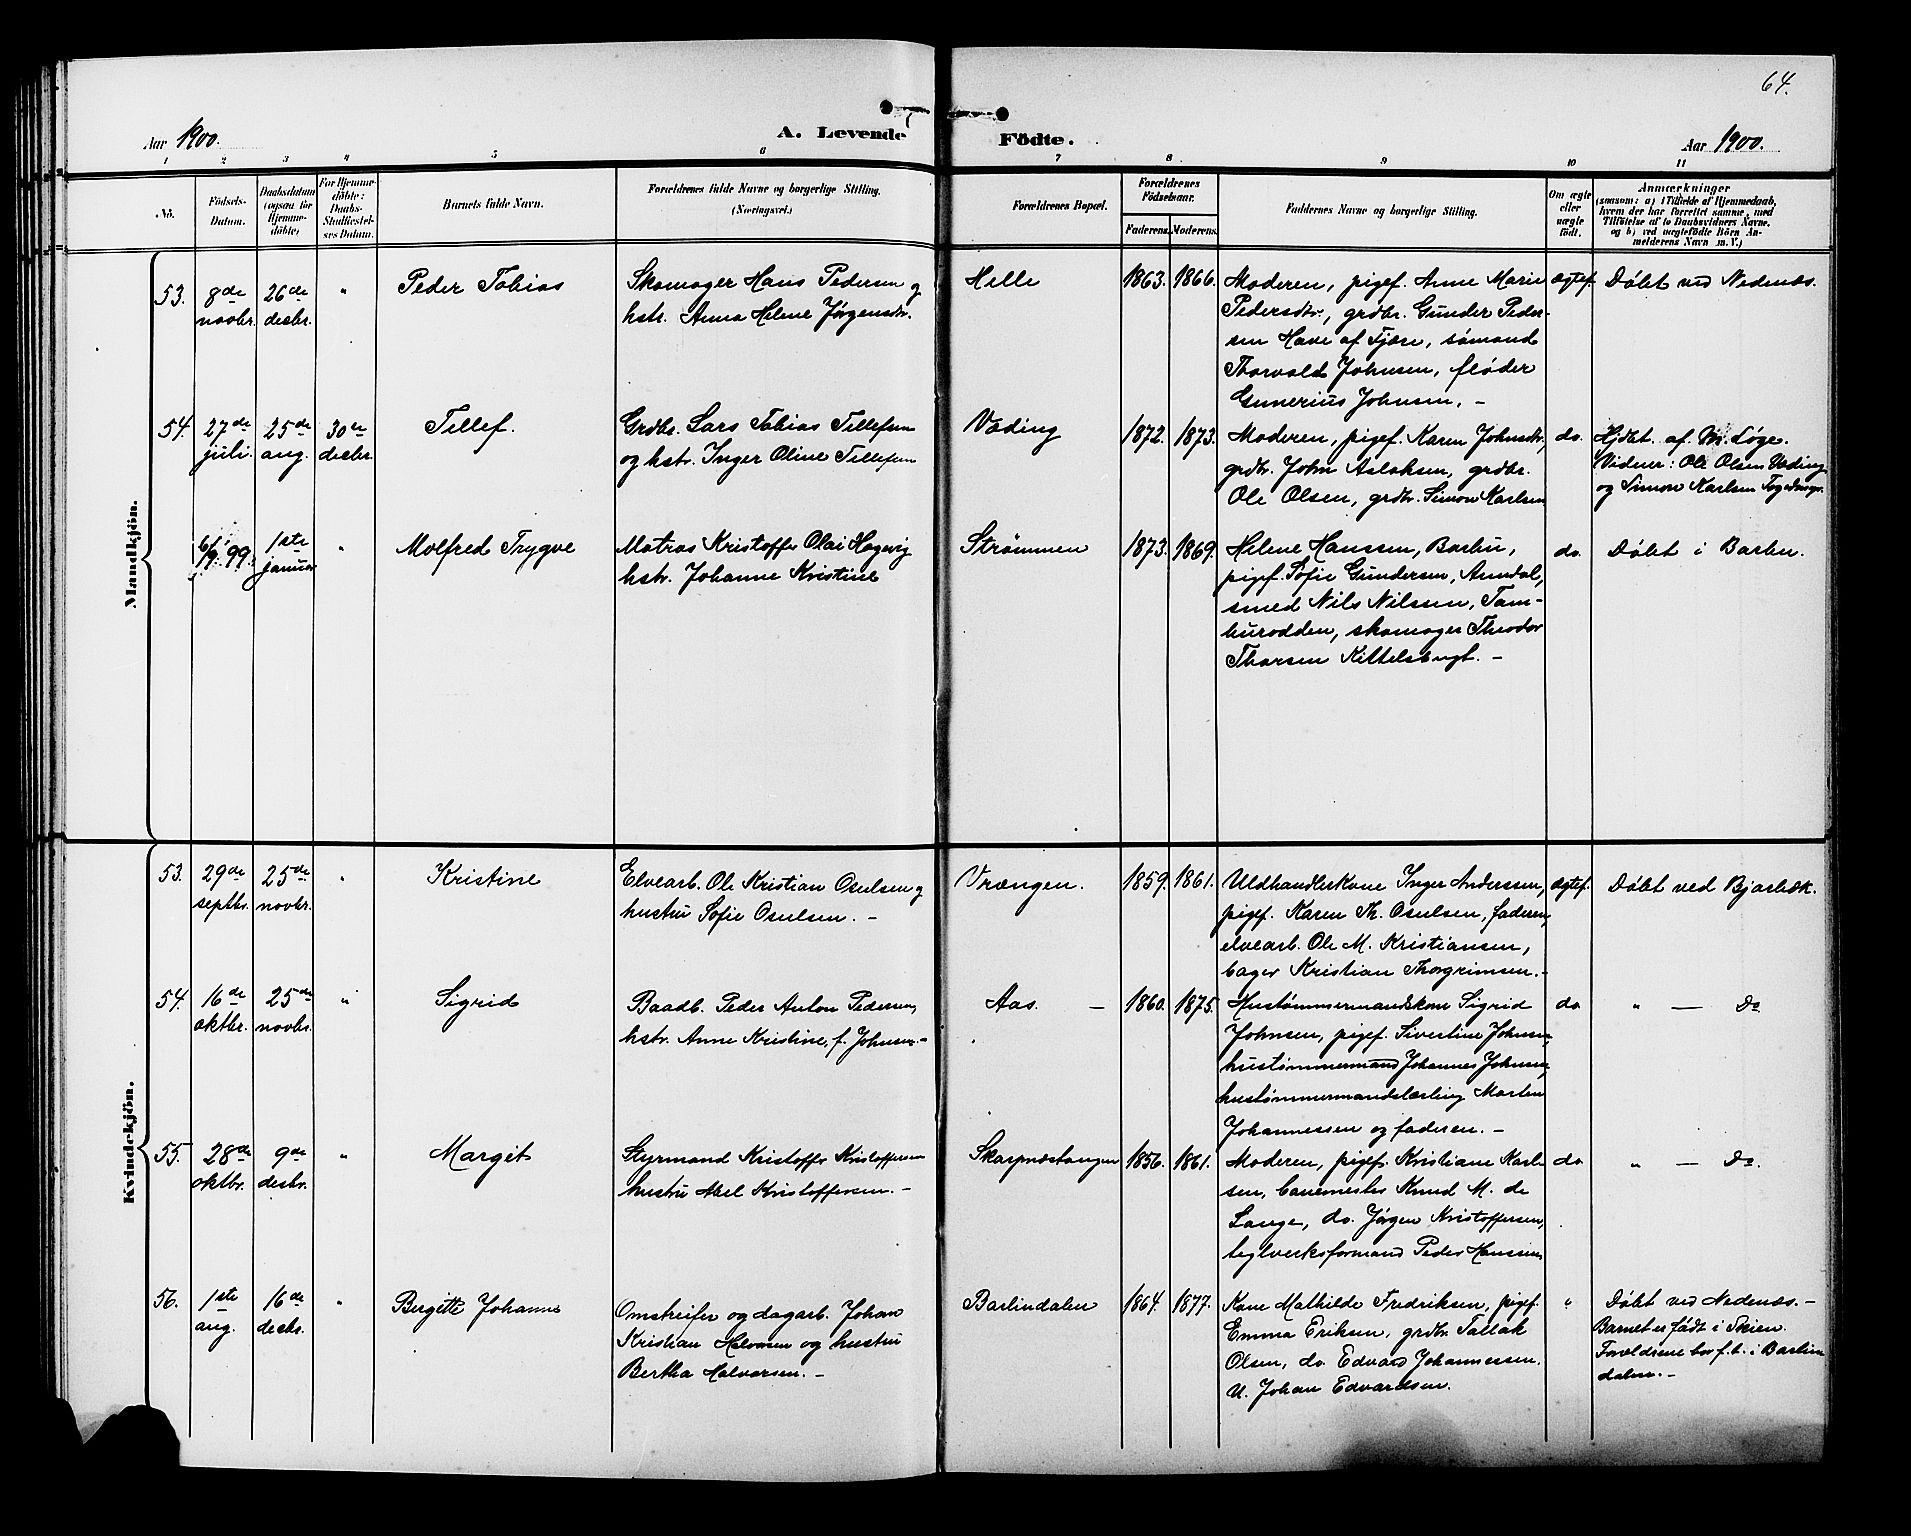 64.
Aar 1900.
A. Levende Födte.
Aar 1900.
1 2 3 4 5 6 7 8 9 10 11
No.
Födsels-
Datum.
Daabsdatum
(ogsaa for
Hjemme-
döbte)
For Hjemme-
döbte:
Daabs-
Stadfæstel-
ses Datum.
Barnets fulde Navn.
Forældrenes fulde Navne og borgerlige Stilling.
(Næringsvei.)
Forældrenes Bopæl.
Forældrenes
Födselsaar.
Faderens.
Moderens.
Faddernes Navne og borgerlige Stilling.
Om ægte
eller
uægte
født.
Anmærkninger
(saasom: a) i Tilfælde af Hjemmedaab,
hvem der har forrettet samme, med
Tilföielse af to Daabsvidners Navne,
og b) ved uægtefödte Börn An-
melderens Navn m. V.)
Mandkjön.
53.
8de
novbr.
26de
desbr.
"
Peder Tobias
Skomager Hans Pedersen og
hstr. Anna Helene Jørgensdtr.
Helle
1863.
1866.
Moderen, pigef. Anne Marie
Pedersdtr., grdbr. Gunder Peder-
sen Have af Fjære, sømand
Thorvald Johnsen, fløder
Gunerius Johnsen. –
ægtef.
Døbt ved Nedenæs.
54.
27de
juli.
25de
aug.
30te
desbr.
Tellef.
Grdbr. Lars Tobias Tellefsen
og hstr. Inger Oline Tellefsen
Væding
1872.
1873.
Moderen, pigef. Karen Johnsdtr,
grdbr. John Aslaksen, grdbr.
Ole Olsen, grdbr. Simon Karlsen
do.
Hjdbt. af M. Løge.
Vidner: Ole Olsen Væding
og Simon Karlsen
6/9. 99.
1ste
januar
"
Molfred Trygve
Matros Kristoffer Olai Hagevig
hstr. Johanne Kristine
Strømmen
1873.
1869.
Helene Hanssen, Barbu,
pigef. Sofie Gundersen, Arendal,
smed Nils Nilssen, Tam-
burodden, skomager Theodor
Thorsen Kittelsbugt. –
do.
Døbt i Barbu.
Kvindekjön.
53.
29de
septbr.
25de
novbr.
"
Kristine
Elvearb. Ole Kristian Osulsen og
hustru Sofie Osulsen. –
Vrængen.
1859.
1861.
Uldhandlerkone Inger Anderssen,
pigef. Karen Th. Osulsen, faderen,
elvearb. Ole M. Kristiansen,
bager Kristian Thorgrimsen. –
ægtef.
Døbt ved Bjorbæk.
54.
16de
oktbr.
25de
novbr.
"
Sigrid
Baadb. Peder Anton Pedersen,
hstr. Anne Kristine, f. Johnsen. –
Aas. –
1860.
1875.
Hustømmermandskone Sigrid
Johnsen, pigef. Sivertine Johnsen,
hustømmermand Johannes Johnsen,
hustømmermandslærling Marten
Johannessen og faderen. –
do
" – Do
55.
28de
oktbr.
9de
desbr.
"
Margit
Styrmand Kristoffer Kristoffersen
hustru Abel Kristoffersen. –
Skarpnæstangen
1856.
1861.
Moderen, pigef. Kristiane Karl-
sen, banemester Knud M. de
Lange, do. Jørgen Kristoffersen,
teglverksformand Peder Hanssen
do
" – Do.
56.
1ste
aug.
16de
desbr.
"
Bergitte Johanne
Omstreifer og dagarb. Johan
Kristian Halvorsen og hustru
Bertha Halvorsen. –
Barlindalen
1864.
1877.
Kone Mathilde Fredriksen, pigef.
Emma Eriksen, grdbr. Tallak
Olsen, do. Edvard Johannessen.
U. Johan Edvardsen.
"
Døbt ved Nedenæs. –
Barnet er født i Skien.
Forældrene bor f.t. i Barlin
dalen. –